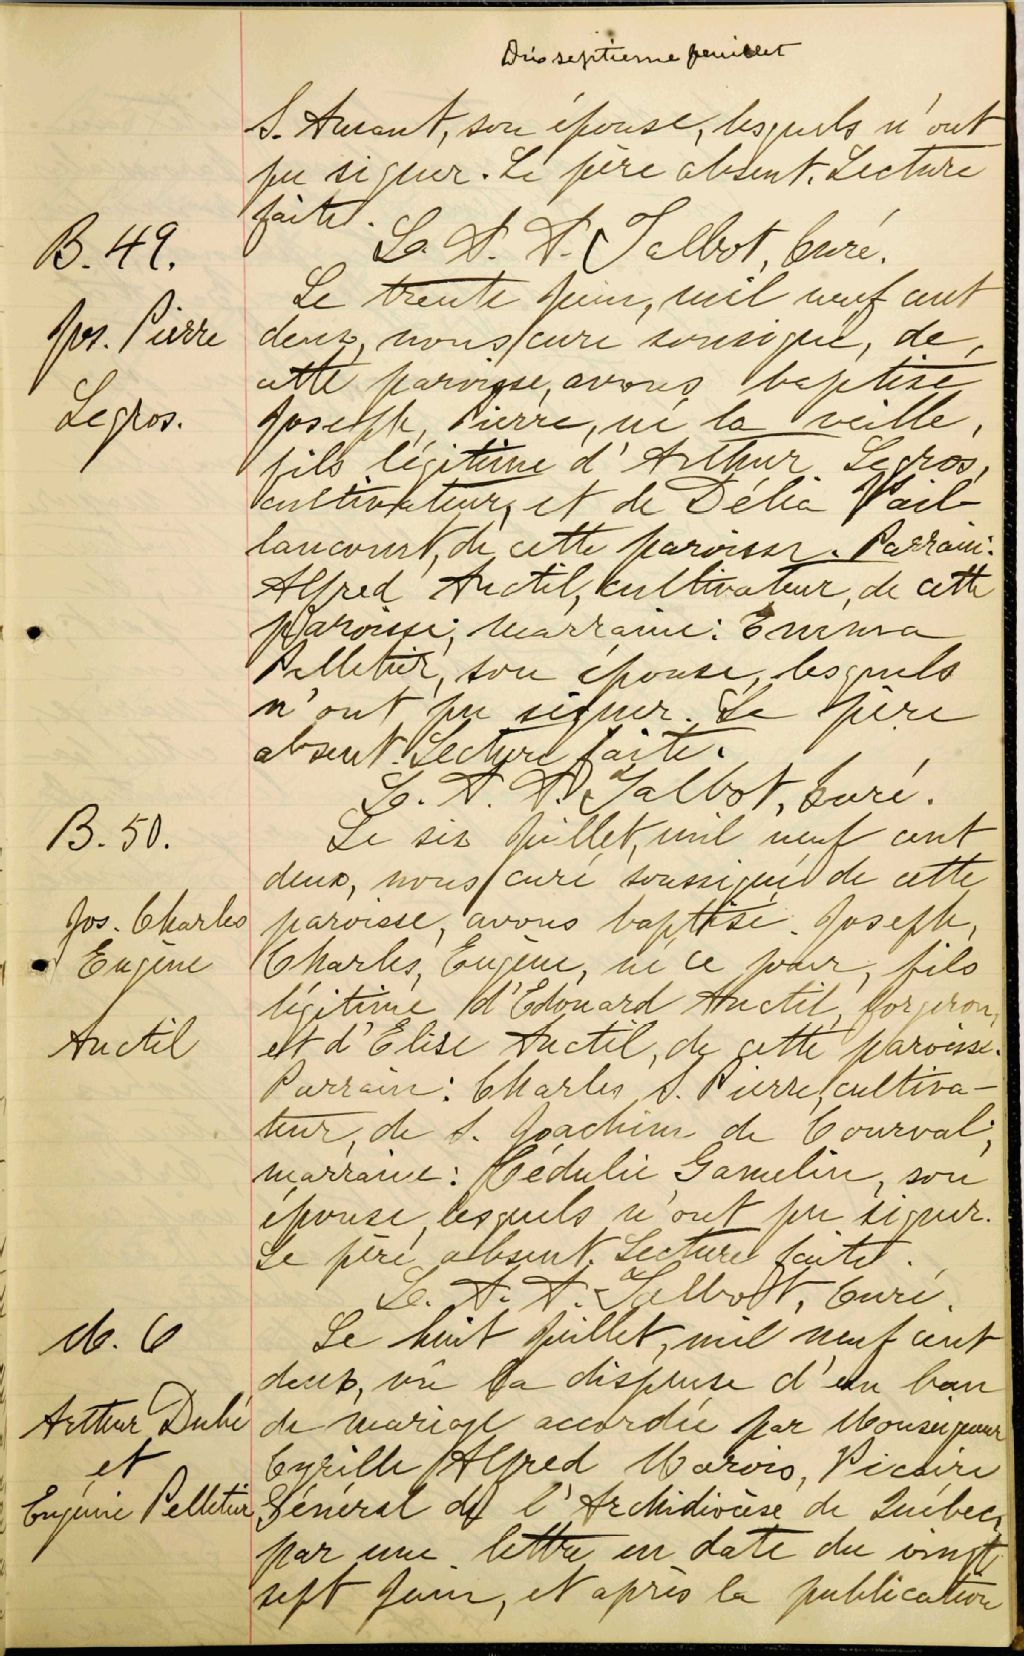 Dix septieme feuillet
S. Amant, son épouse, lesquels n'ont
pu signer. Le père absent. Lecture
faite.
L. A. A. Talbot, Curé.
B. 49.
Jos. Pierre
Legros.
Le trente Juin, mil neuf cent
deux, nous curé soussigné, de
cette paroisse, avons baptisé
Joseph, Pierre, né la veille,
fils légitime d'Arthur Legros,
cultivateur, et de Délia Vail-
lancourt, de cette paroisse. Parrain:
Alfred Auctil, cultivateur, de cette
paroisse; marraine: Emma
Pelletier, son épouse, lesquels
n'ont pu signer. Le père
absent. Lecture faite.
L. A. A. Talbot, Curé.
B. 50.
Jos. Charles
Eugène
Auctil
Le six Juillet, mil neuf cent
deux, nous curé soussigné de cette
paroisse, avons baptisé Joseph,
Charles, Eugène, né ce jour, fils
légitime d'Edouard Auctil, forgeron,
et d'Elise Auctil, de cette paroisse.
Parrain: Charles S. Pierre, cultiva-
teur, de S. Joachim de Courval;
marraine: Cédulie Gamelin, son
épouse, lesquels n'ont pu signer.
Le père absent. Lecture faite.
L. A. A. Talbot, Curé.
M. 6
Arthur Dubé
et
Eugénie Pelletier
Le huit Juillet, mil neuf cent
deux, vû la dispense d'un ban
de mariage accordée par Monseigneur
Cyrille Alfred Marois, Vicaire
Général de l'Archidiocèse de Québec,
par une lettre en date du vingt
sept Juin, et après la publication